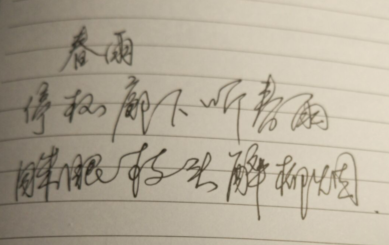 春雨
停杯廊下听春雨
醉眼枝头解柳烟